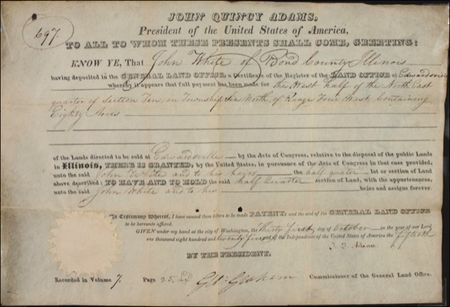 697
JOHN QUINCY ADAMS,
President of the United States of America,
TO ALL TO WHOM THESE PRESENTS SHALL COME, GREETING:
KNOW YE, That John White of Bond County Illinois
having deposited in the GENERAL LAND OFFICE, a Certificate of the Register of the LAND OFFICE at Edwardsville
whereby it appears that full payment has been made for the West half of the North East
quarter of Section Ten, in Township Six North, of Range Four West Containing
Eighty Acres
of the Lands directed to be sold at Edwardsville by the Acts of Congress, relative to the disposal of the public Lands
in Illinois, THERE IS GRANTED, by the United States, in pursuance of the Acts of Congress in that case provided,
unto the said John White and to his heirs the half quarter lot or section of Land
above described: TO HAVE AND TO HOLD the said half Quarter section of Land, with the appurtenances,
unto the said John White and to his heirs and assigns forever.
In Testimony Whereof, I have caused these letters to be made PATENT, and the seal of the GENERAL LAND OFFICE
to be hereunto affixed.
GIVEN under my hand at the city of Washington, the thirty first day of October in the year of our Lord
one thousand eight hundred and twenty five and of the Independence of the United States of America the fiftieth
J. Q. Adams
BY THE PRESIDENT,
Recorded in Volume 7. Page 25 Geo. Graham Commissioner of the General Land Office.